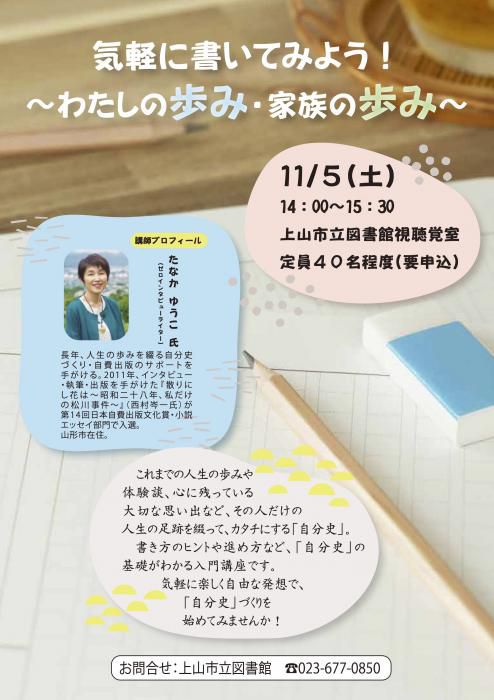 気軽に書いてみよう！
～わたしの歩み・家族の歩み～
11/5(土)
14：00～15：30
上山市立図書館視聴覚室
定員４０名程度(要申込)
講師プロフィール
たなか ゆうこ 氏
(ゼロインタビューライター)
長年、人生の歩みを綴る自分史
づくり・自費出版のサポートを
手がける。2011年、インタビュー
・執筆・出版を手がけた『散りに
し花は～昭和二十八年、私だけ
の松川事件～』(西村岑一氏)が
第14回日本自費出版文化賞・小説
エッセイ部門で入選。
山形市在住。
これまでの人生の歩みや
体験談、心に残っている
大切な思い出など、その人だけの
人生の足跡を綴って、カタチにする「自分史」。
書き方のヒントや進め方など、「自分史」の
基礎がわかる入門講座です。
気軽に楽しく自由な発想で、
「自分史」づくりを
始めてみませんか！
お問合せ：上山市立図書館 ☎023-677-0850